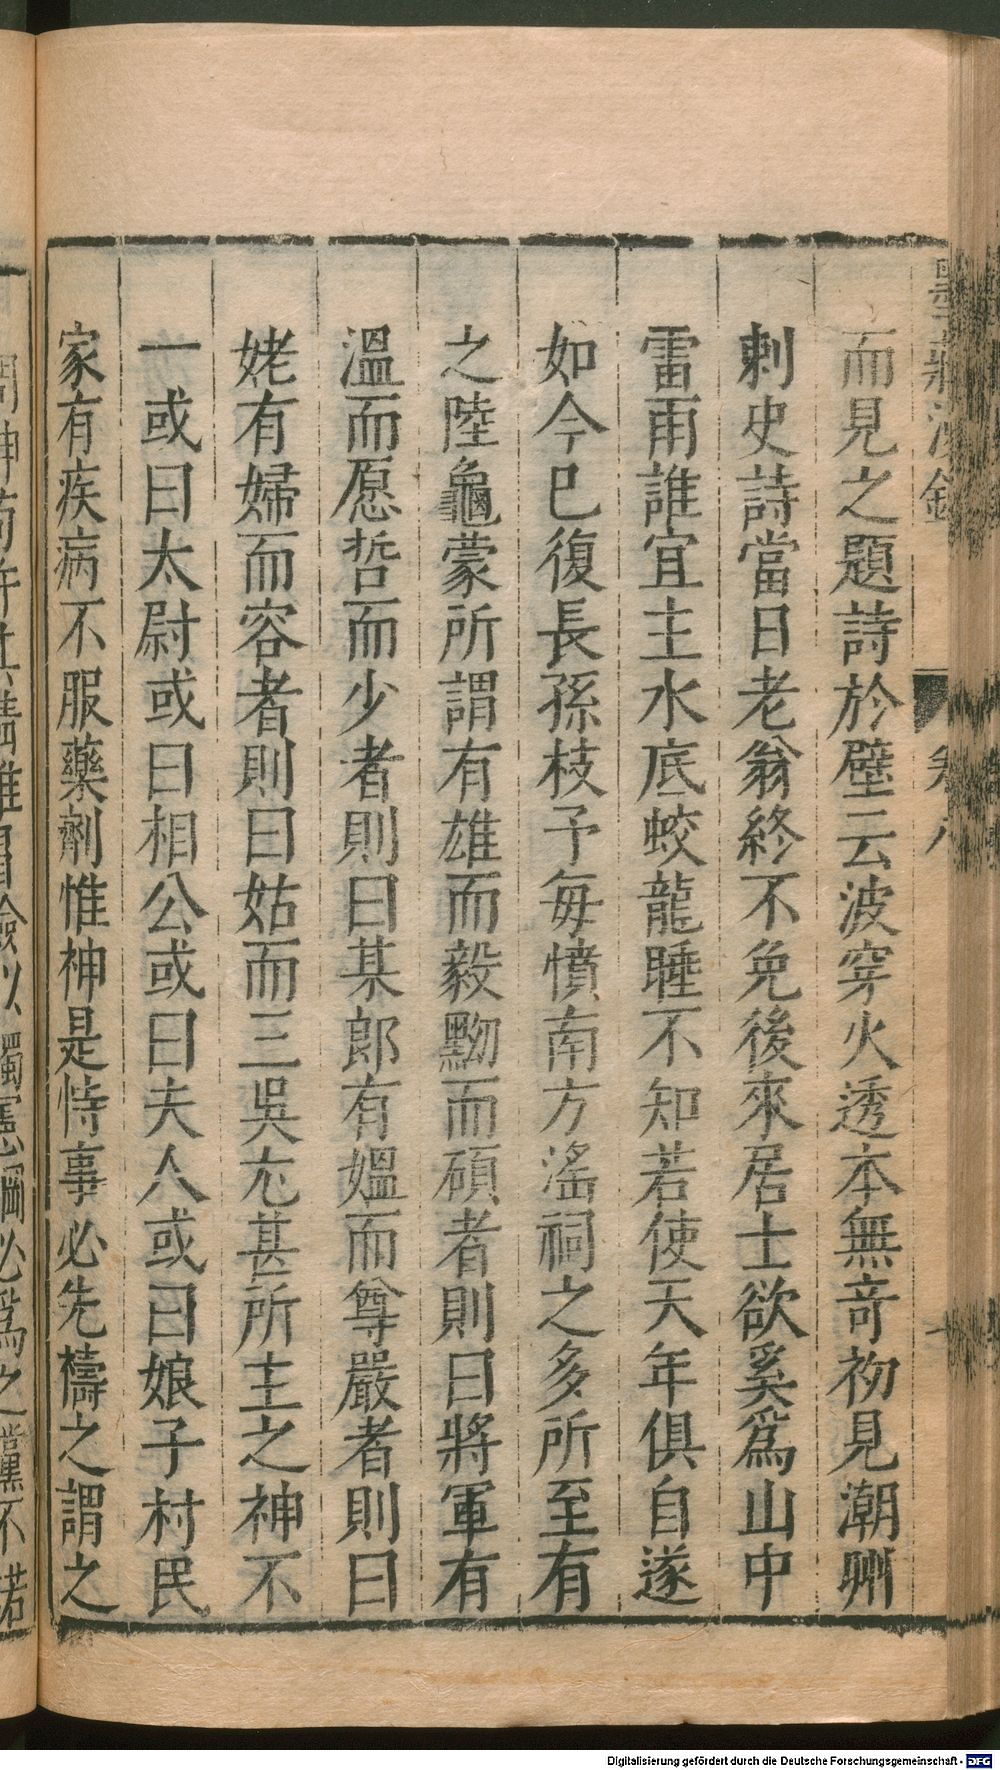 而見之題詩於壁云波穿火透本無奇初見潮州
刺史詩當日老翁終不免後來居士欲奚爲山中
雷雨誰宜主水底蛟龍睡不知若使天年俱自遂
如今已復長孫枝予每憤南方滛祠之多所至有
之陸龜蒙所謂有雄而毅黝而碩者則曰將軍有
溫而愿哲而少者則曰某郎有媼而尊嚴者則曰
姥有婦而容者則曰姑而三吳尢甚所主之神不
一或曰太尉或曰相公或曰夫人或曰娘子村民
家有疾病不服藥劑惟神是恃事必先禱之謂之
Digitalisierung gefördert durch die Deutsche Forschungsgemeinschaft - DFG